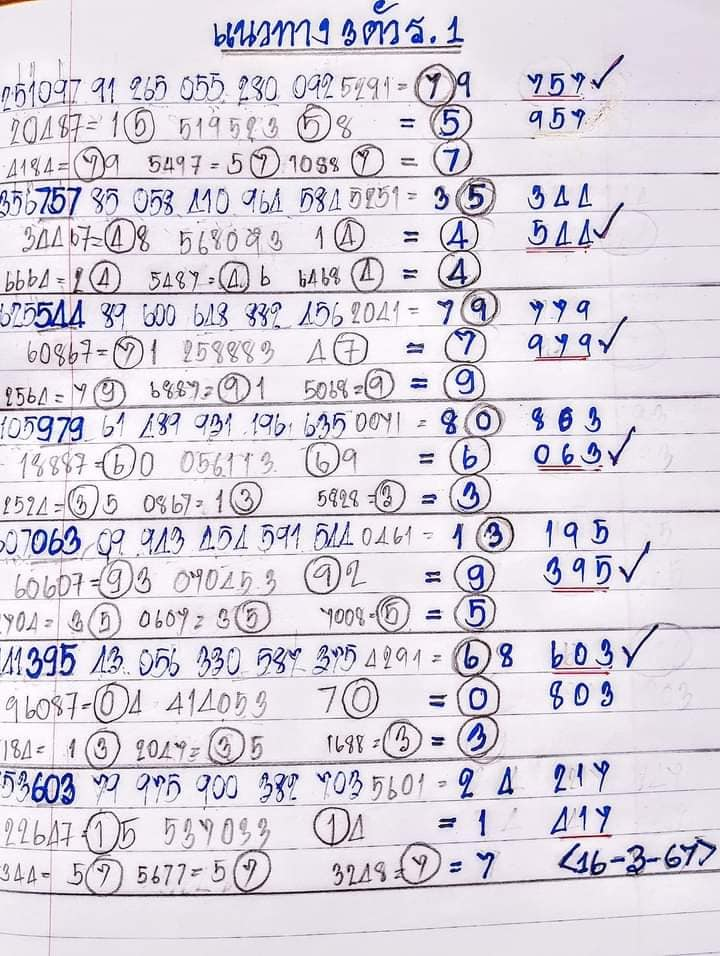 แนวทาง 3 ตัว ร.1
251097 91 265 055 280 092 5291 = 79 757 ✓
20487 = 15 519523 58 = 5 957
4184 = 79 5497 = 57 7088 7 = 7
356757 85 058 410 964 584 5251 = 35 344
34467 = 48 568093 14 = 4 544 ✓
6664 = 24 5487 = 46 6468 4 = 4
625544 89 600 648 882 456 2041 = 79 779
60867 = 71 258883 47 = 7 979 ✓
2564 = 79 6887 = 91 5068 = 9 = 9
105979 61 489 931 196 635 0071 = 80 863
18887 = 60 056113 69 = 6 063 ✓
2524 = 35 0867 = 13 5828 = 3 = 3
607063 09 943 454 591 544 0461 = 13 195
60607 = 93 070453 92 = 9 395 ✓
704 = 35 0607 = 35 7008 = 5 = 5
41395 43 056 330 587 375 4291 = 68 603 ✓
96087 = 04 414053 70 = 0 803
184 = 13 2047 = 35 1688 = 3 = 3
53603 79 975 900 382 703 5601 = 24 217
22647 = 15 537033 14 = 1 417
344 = 57 5677 = 57 3248 = 7 = 7 <16-3-67>